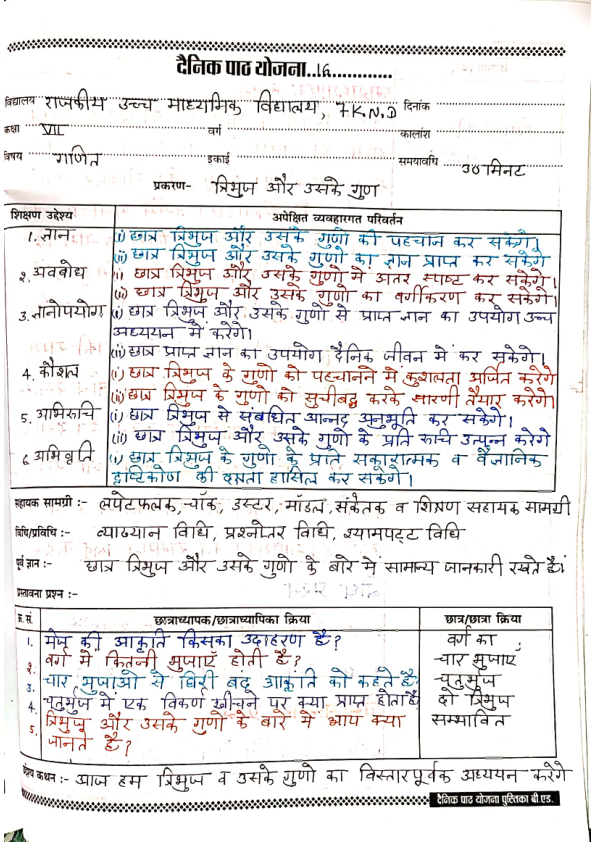 दैनिक पाठ योजना..16............
विद्यालय राजकीय उच्च माध्यमिक विद्यालय, 7 K.N.D दिनांक
कक्षा VII वर्ग कालांश
विषय गणित इकाई समयावधि 30 मिनट
प्रकरण- त्रिभुज और उसके गुण
शिक्षण उद्देश्य अपेक्षित व्यवहारगत परिवर्तन
1. ज्ञान (i) छात्र त्रिभुज और उसके गुणो की पहचान कर सकेगे।
(ii) छात्र त्रिभुज और उसके गुणो का ज्ञान प्राप्त कर सकेगे
2. अवबोध (i) छात्र त्रिभुज और उसके गुणो में अंतर स्पष्ट कर सकेगे।
(ii) छात्र त्रिभुज और उसके गुणो का वर्गीकरण कर सकेगे।
3. ज्ञानोपयोग (i) छात्र त्रिभुज और उसके गुणो से प्राप्त ज्ञान का उपयोग उच्च
अध्ययन में करेगे।
(ii) छात्र प्राप्त ज्ञान का उपयोग दैनिक जीवन में कर सकेगे।
4. कौशल (i) छात्र त्रिभुज के गुणो को पहचानने में कुशलता अर्जित करेगे
(ii) छात्र त्रिभुज के गुणो को सुचीबद्ध करके सारणी तैयार करेगे।
5. अभिरुचि (i) छात्र त्रिभुज से संबधित आनन्द अनुभूति कर सकेगे।
(ii) छात्र त्रिभुज और उसके गुणो के प्रति रुचि उत्पन्न करेगे
6. अभिवृति (i) छात्र त्रिभुज के गुणो के प्रति सकारात्मक व वैज्ञानिक
दृष्टिकोण की दक्षता हासिल कर सकेगे।
सहायक सामग्री :- लपेटफलक, चॉक, डस्टर, मॉडल, संकेतक व शिक्षण सहायक सामग्री
विधि/प्रविधि :- व्याख्यान विधि, प्रश्नोतर विधि, श्यामपट्ट विधि
पूर्व ज्ञान :- छात्र त्रिभुज और उसके गुणो के बारे में सामान्य जानकारी रखते है।
प्रस्तावना प्रश्न :-
क्र.सं. छात्राध्यापक/छात्राध्यापिका क्रिया छात्र/छात्रा क्रिया
1. मेज की आकृति किसका उदाहरण है? वर्ग का
2. वर्ग में कितनी भुजाएँ होती है? चार भुजाएँ
3. चार भुजाओ से घिरी बंद आकृति को कहते है। चतुर्भुज
4. चतुर्भुज में एक विकर्ण खीचने पर क्या प्राप्त होता है। दो त्रिभुज
5. त्रिभुज और उसके गुणो के बारे में आप क्या सम्भावित
जानते है?
उद्देश्य कथन :- आज हम त्रिभुज व उसके गुणो का विस्तारपूर्वक अध्ययन करेगे
दैनिक पाठ योजना पुस्तिका बी.एड.